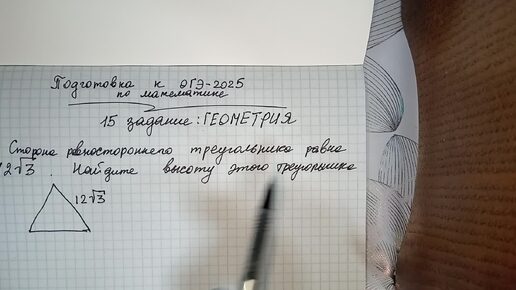 Подготовка к ОГЭ-2025
по математике
15 задание: ГЕОМЕТРИЯ
Сторона равностороннего треугольника равна
12√3. Найдите высоту этого треугольника
12√3